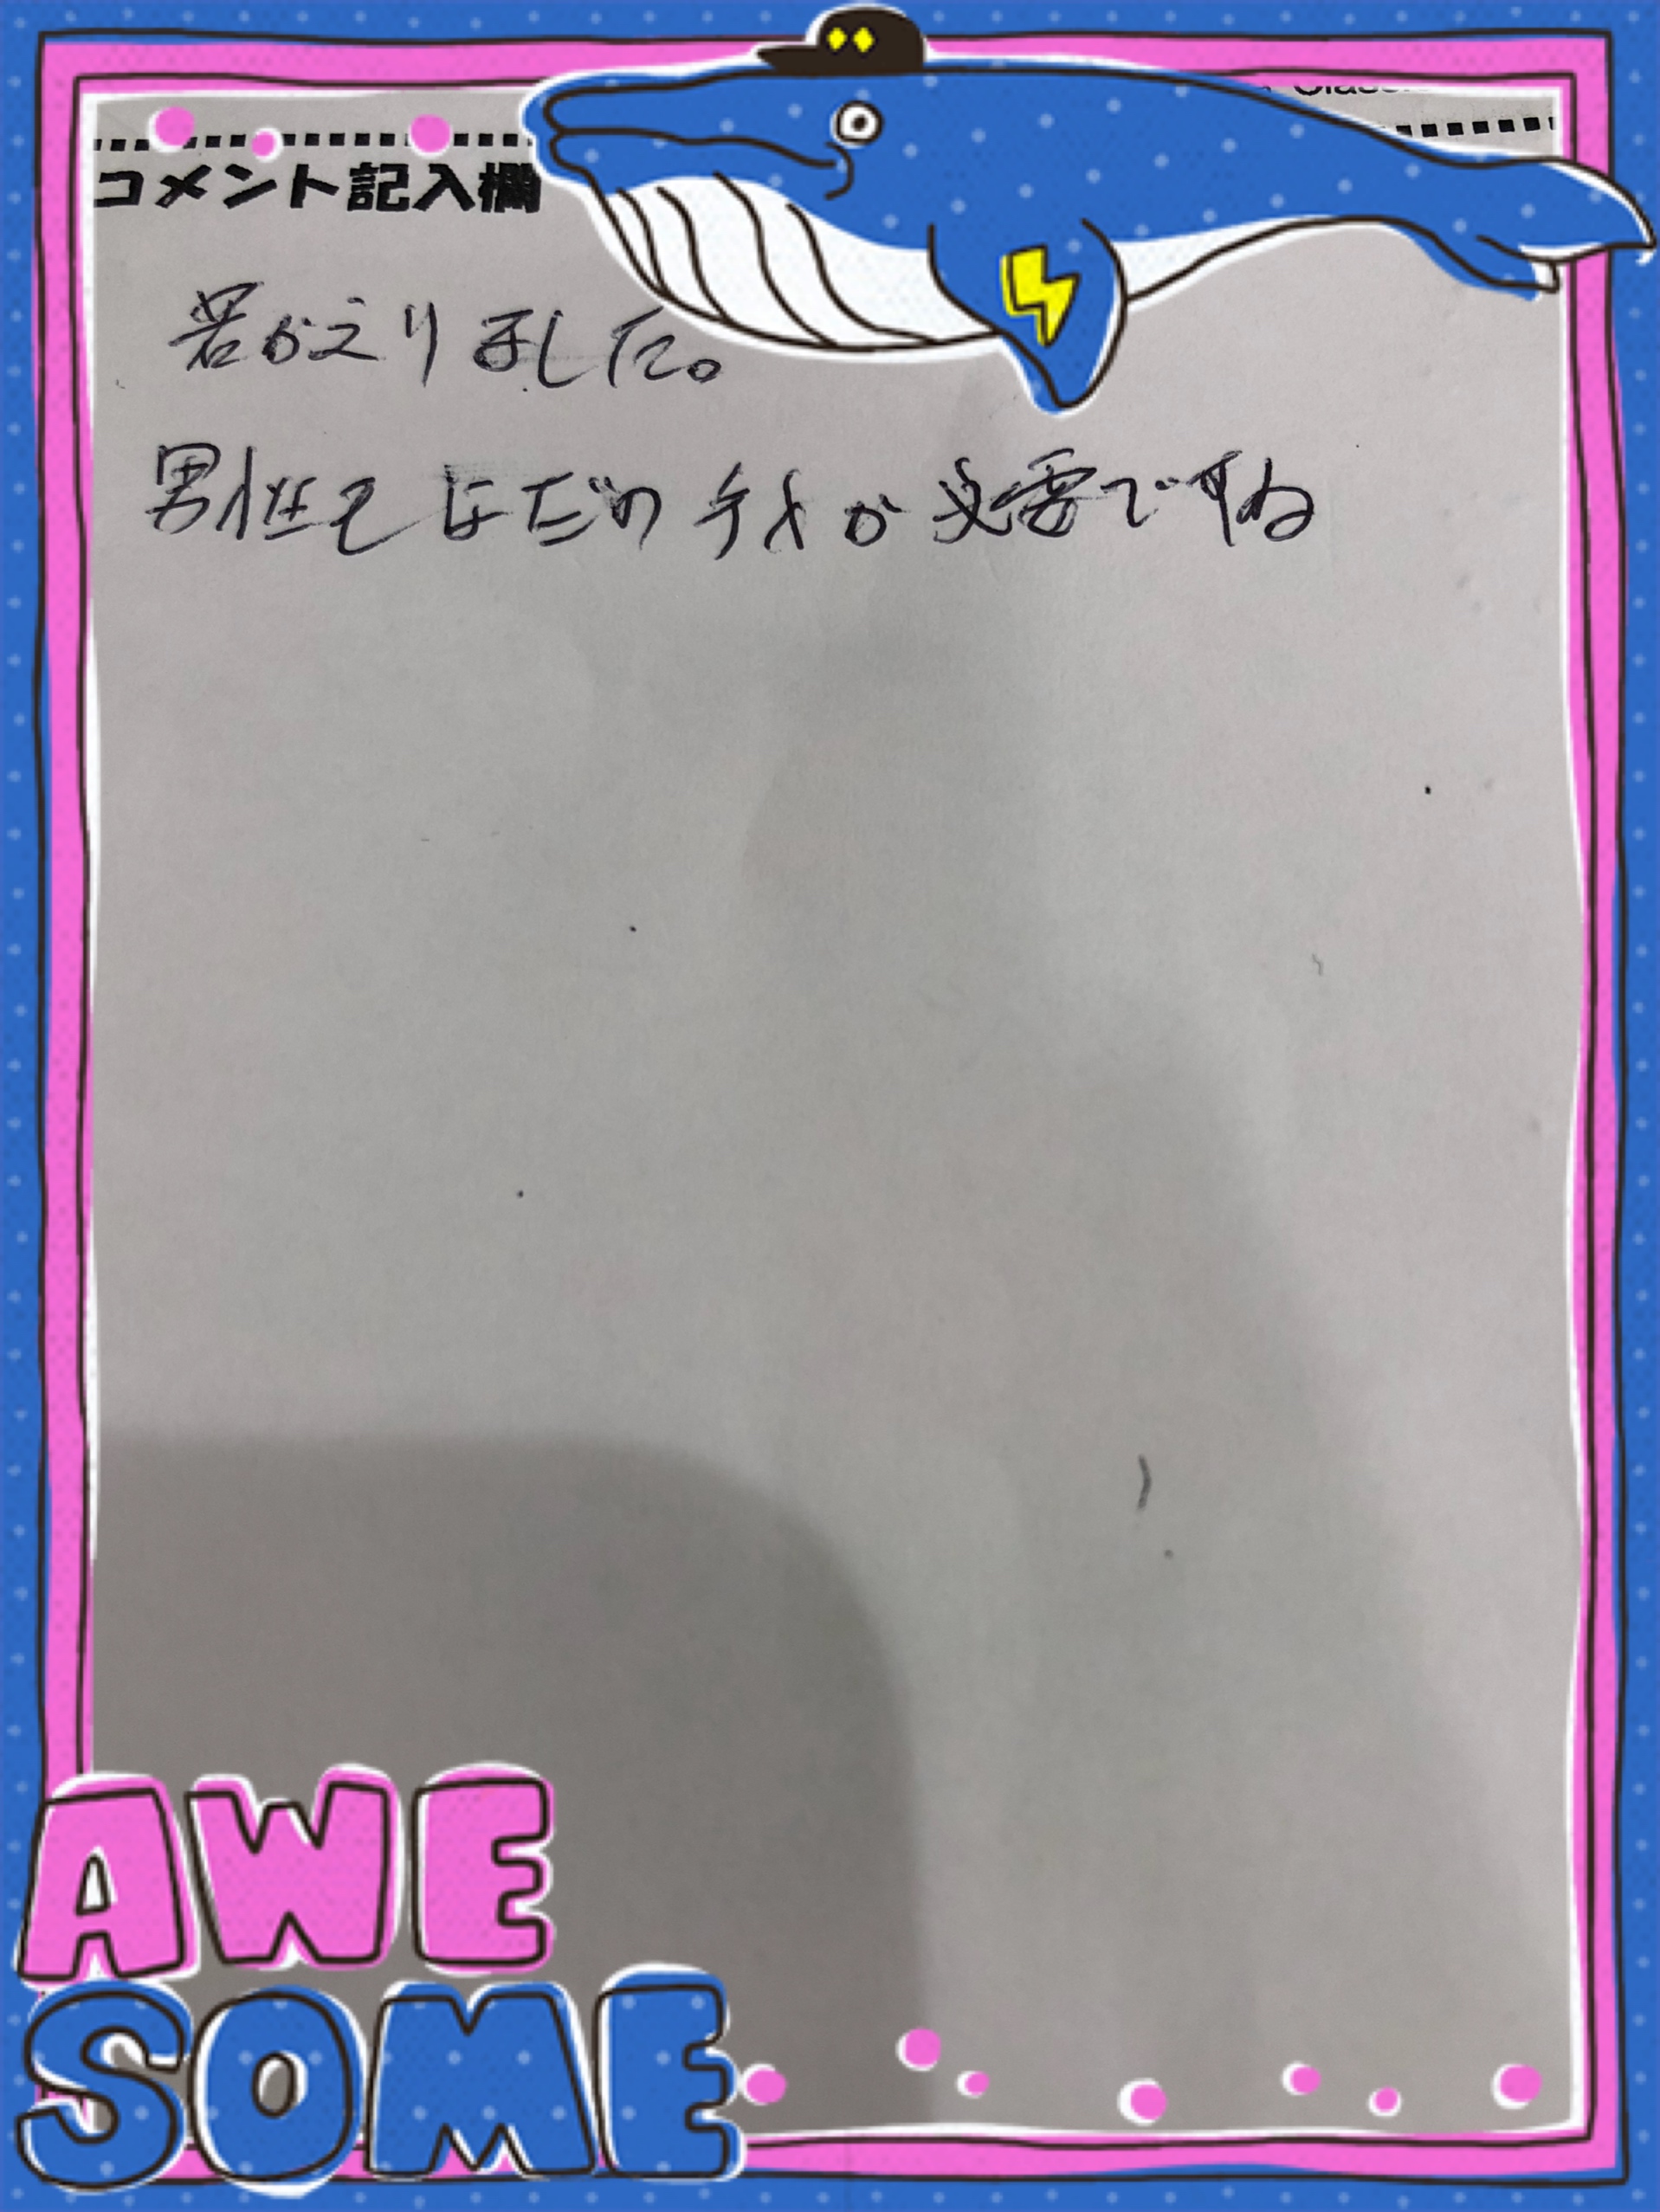 コメント記入欄
若がえりました。
男性もはだの手入が必要ですね
AWE
SOME